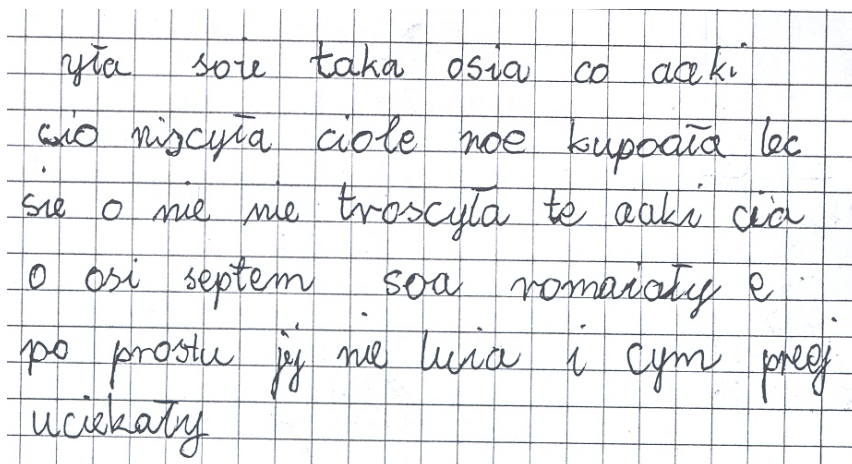 yła soie taka osia co aaki
cio niscyła ciole noe kupoała lec
sie o nie nie troscyła te aaki cia
o osi septem soa romaiały e
po prostu jej nie luia i cym preej
uciekały